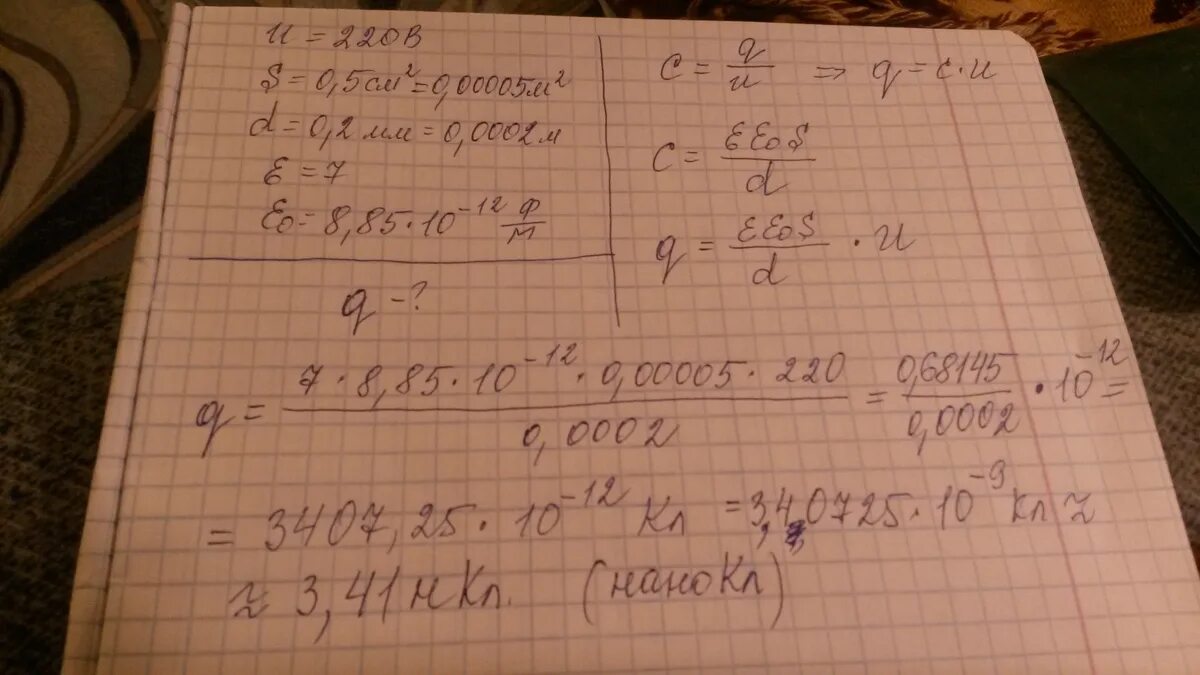 U = 220В
S = 0,5см² = 0,00005м²
d = 0,2 мм = 0,0002м
ε = 7
ε₀ = 8,85·10⁻¹² Ф/м
q - ?
C = q/U ⇒ q = C·U
C = εε₀S/d
q = εε₀S/d · U
q = 7·8,85·10⁻¹²·0,00005·220/0,0002 = 0,68145/0,0002 · 10⁻¹² =
= 3407,25·10⁻¹² Кл = 3,40725·10⁻⁹ Кл ≈
≈ 3,41 нКл. (наноКл)